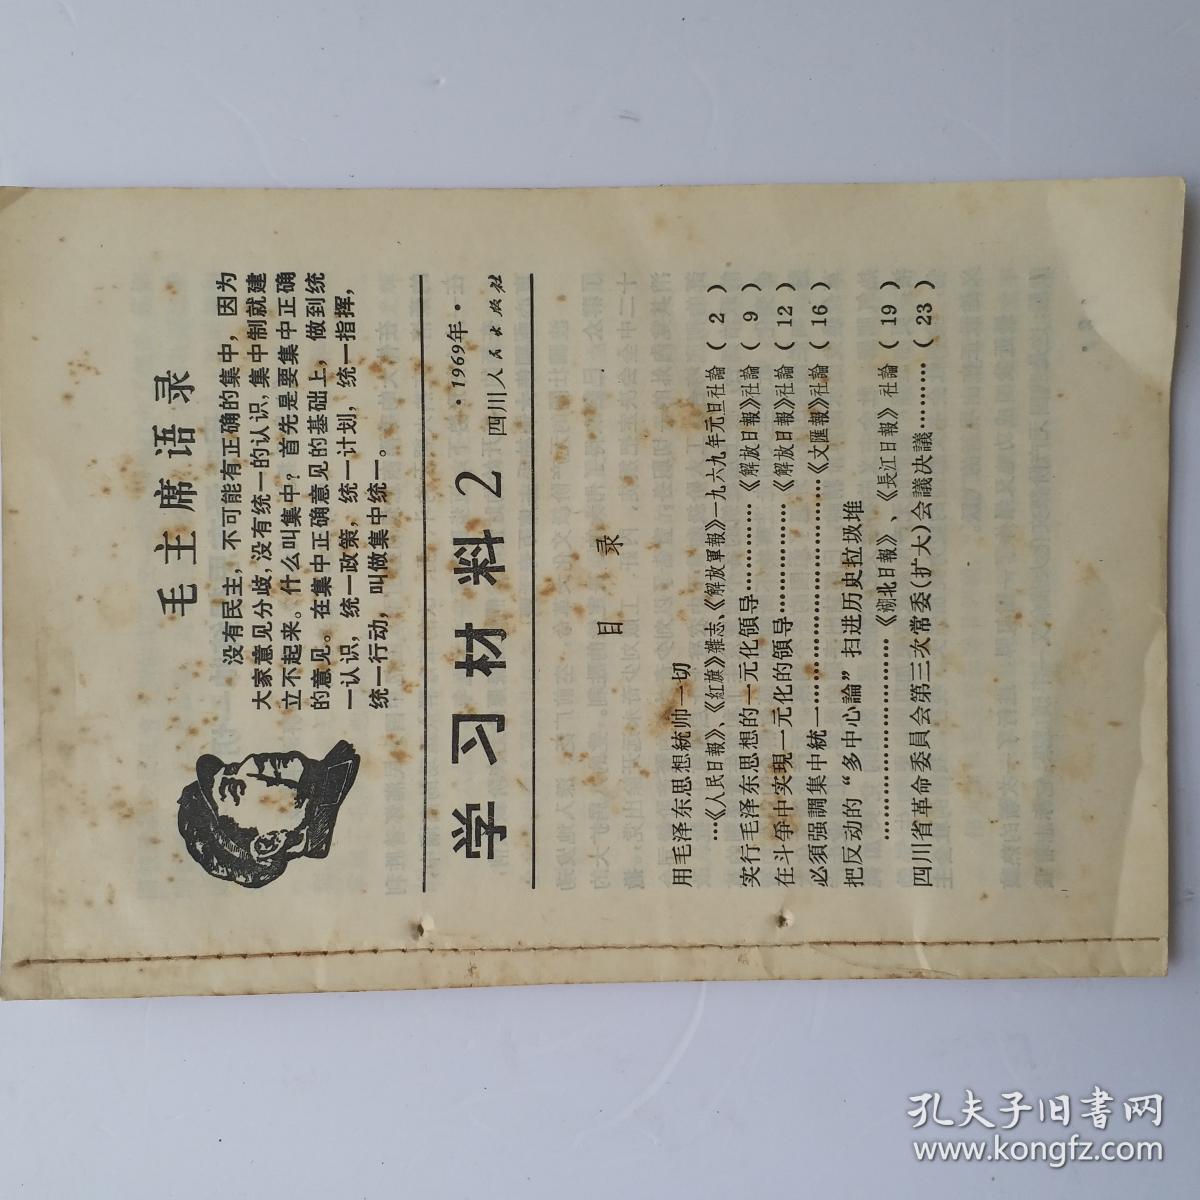 毛主席语录
没有民主，不可能有正确的集中，因为
大家意见分歧，没有统一的认识，集中制就建
立不起来。什么叫集中？首先是要集中正确
的意见。在集中正确意见的基础上，做到统
一认识，统一政策，统一计划，统一指挥，
统一行动，叫做集中统一。
学习材料 2
·1969年·
四川人民出版社
目录
用毛泽东思想統帅一切
…《人民日報》、《紅旗》雜志、《解放軍報》一九六九年元旦社論（2）
实行毛泽东思想的一元化領导…………《解放日報》社論（9）
在斗爭中实現一元化的領导…………《解放日報》社論（12）
必須强調集中統一……………………《文匯報》社論（16）
把反动的“多中心論”扫进历史垃圾堆
……………………《湖北日報》、《長江日報》社論（19）
四川省革命委員会第三次常委(扩大)会議决議………（23）
孔夫子旧書网
www.kongfz.com